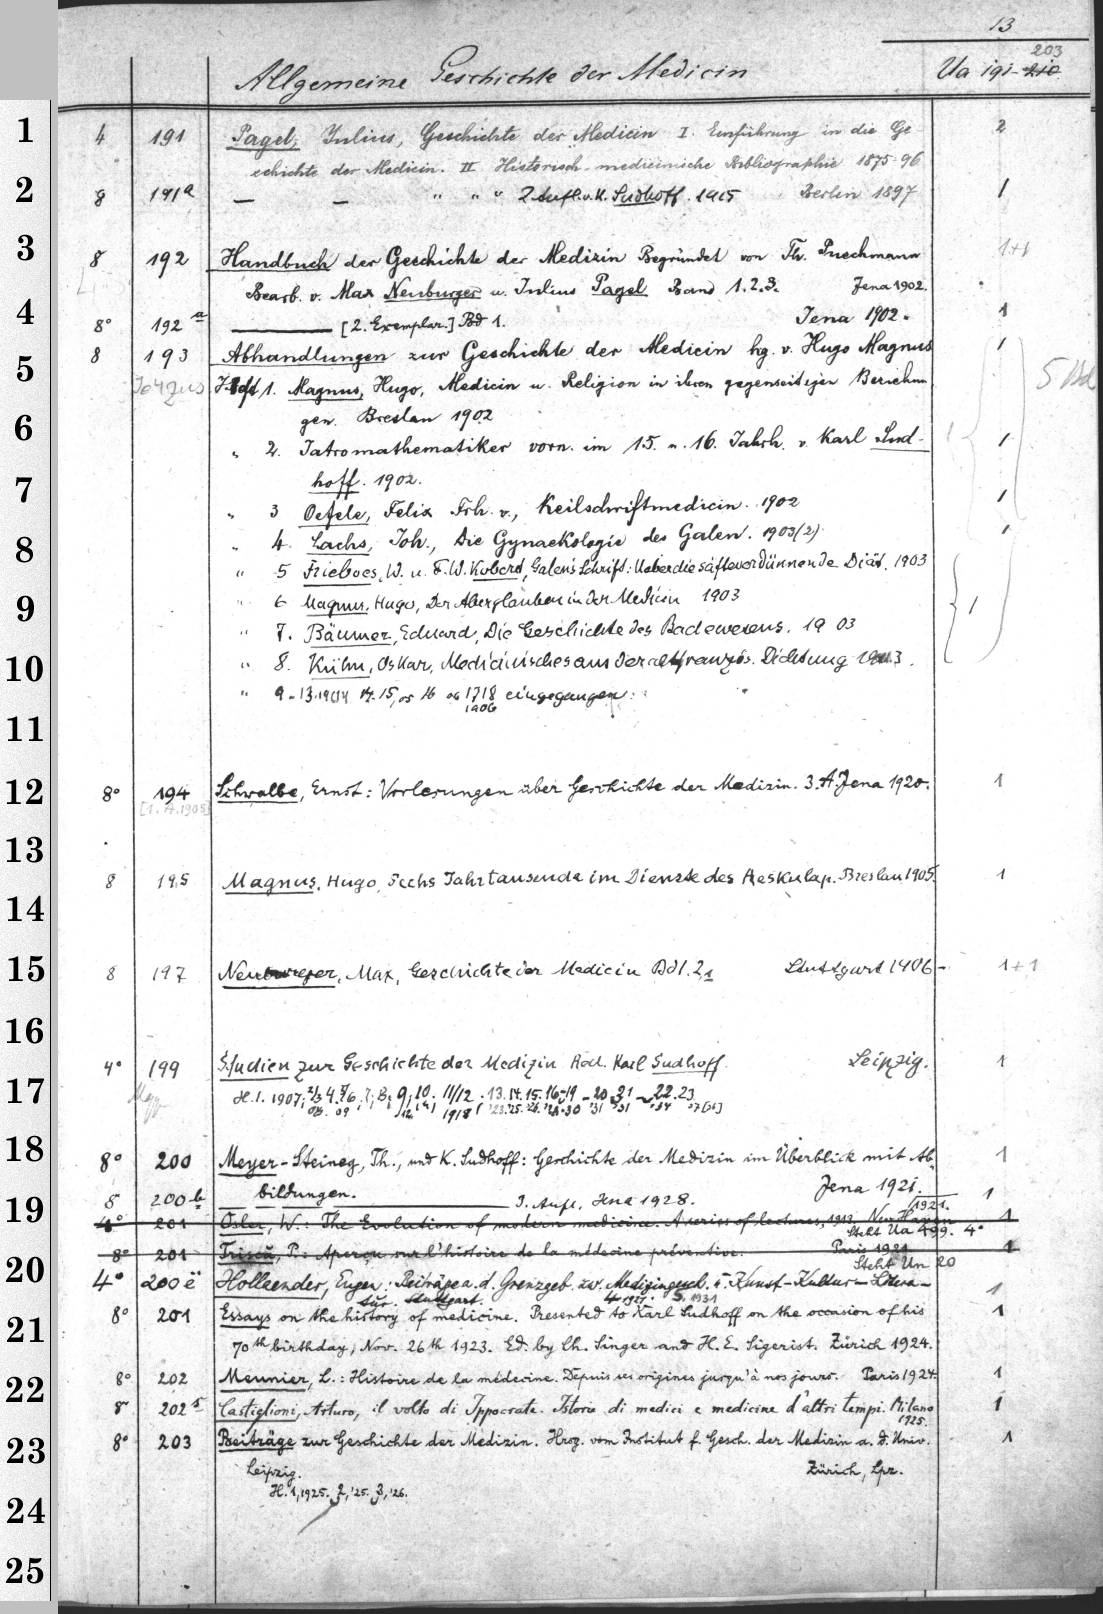 13
203
Allgemeine Geschichte der Medicin Ua 191-210
1
4 191 Pagel, Julius, Geschichte der Medicin I. Einführung in die Ge- 2
schichte der Medicin. II Historisch-medicinische Bibliographie 1875-96
2
8 191a — — " " " 2 Aufl. v. K. Sudhoff. 1915 Berlin 1897 1
3
8 192 Handbuch der Geschichte der Medizin Begründet von Th. Puschmann 1+1
Bearb. v. Max Neuburger u. Julius Pagel Band 1. 2. 3. Jena 1902.
4
8° 192a [2. Exemplar.] Bd 1. Jena 1902. 1
8 193 Abhandlungen zur Geschichte der Medicin hg. v. Hugo Magnus 1
5
Heft 1. Magnus, Hugo, Medicin u. Religion in ihren gegenseitigen Beziehun 5 Bd
gen. Breslau 1902
6
" 2. Iatromathematiker vorn. im 15. u. 16. Jahrh. v. Karl Sud- 1
hoff. 1902.
7
" 3 Oefele, Felix Frh. v., Keilschriftmedicin. 1902 1
8
" 4. Lachs, Joh., Die Gynaekologie des Galen. 1903(2) 1
" 5 Frieboes, W. u. F. W. Kobert, Galens Schrift: Ueber die säfteverdünnende Diät. 1903
9
" 6 Magnus, Hugo, Der Aberglauben in der Medicin 1903 1
" 7. Bäumer, Eduard, Die Geschichte des Badewesens. 1903
10
" 8. Kühn, Oskar, Medicinisches aus der altfranzös. Dichtung 1903.
" 9-13. 1904 14. 15, 05 16 06 17 18 eingegangen.
1906
11
12
8° 194 Schwalbe, Ernst: Vorlesungen über Geschichte der Medizin. 3. A. Jena 1920. 1
[1. A. 1905]
13
8 195 Magnus, Hugo, Sechs Jahrtausende im Dienste des Aeskulap. Breslau 1905. 1
14
15
8 197 Neuburger, Max, Geschichte der Medicin Bd 1. 2,1 Stuttgart 1906- 1+1
16
4° 199 Studien zur Geschichte der Medizin Red. Karl Sudhoff Leipzig. 1
17
18
8° 200 Meyer-Steineg, Th., und K. Sudhoff: Geschichte der Medizin im Überblick mit Ab- 1
bildungen. Jena 1921.
8 200b 3. Aufl. Jena 1928. 1
19
1921.
4° 201 Osler, W.: The Evolution of modern medicine. A series of lectures, 1913. New Haven 1
Steht Ua 499. 4°
8° 201 Triscă, P.: Aperçu sur l'histoire de la médecine préventive. Paris 1921 1
Steht Un 20
20
4° 200ë Hollaender, Eugen: Beiträge a. d. Grenzgeb. zw. Medizingesch. u. Kunst-Kultur-Litera- 1
tur. Stuttgart. 4 1927. 5. 1931
8° 201 Essays on the history of medicine. Presented to Karl Sudhoff on the occasion of his 1
21
70th birthday, Nov. 26th 1923. Ed. by Ch. Singer and H. E. Sigerist. Zürich 1924.
22
8° 202 Meunier, L.: Histoire de la médecine. Depuis ses origines jusqu'à nos jours. Paris 1924. 1
8° 202a Castiglioni, Arturo, il volto di Ippocrate. Istorie di medici e medicine d'altri tempi. Milano 1
1925.
23
8° 203 Beiträge zur Geschichte der Medizin. Hrsg. vom Institut f. Gesch. der Medizin a. d. Univ. 1
Leipzig. Zürich, Lpz.
H. 1, 1925. 2, '25. 3, '26.
24
25